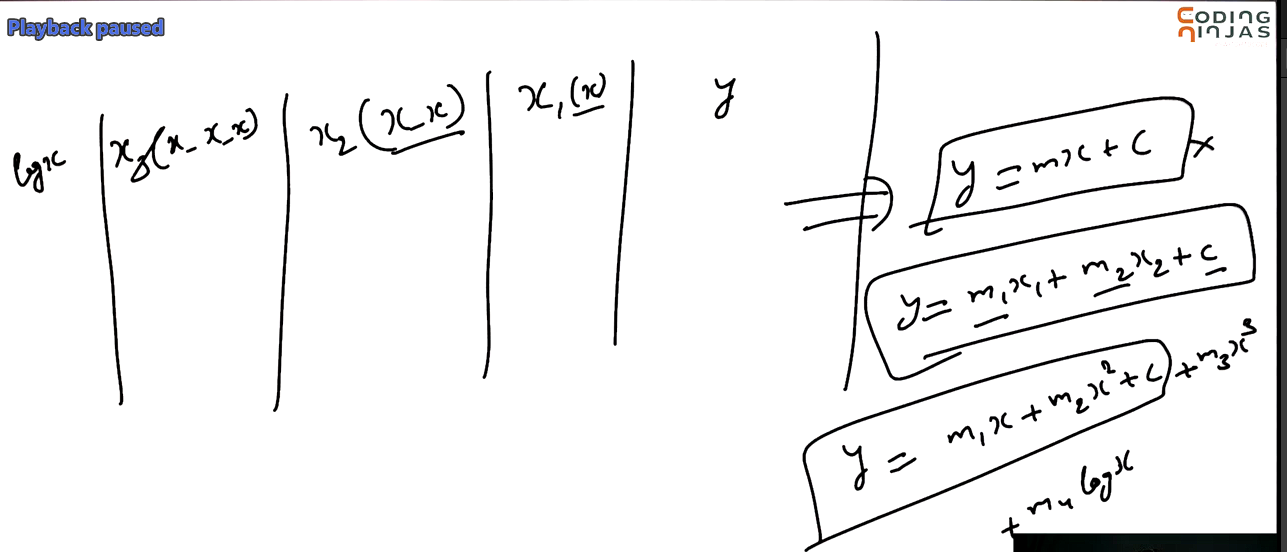 Playback paused
CODING
NINJAS
log x | x₃(x_x_x) | x₂(x_x) | x₁(x) | y
y = mx + c ×
y = m₁x₁ + m₂x₂ + c
y = m₁x + m₂x² + c + m₃x³
+ m₄ log x